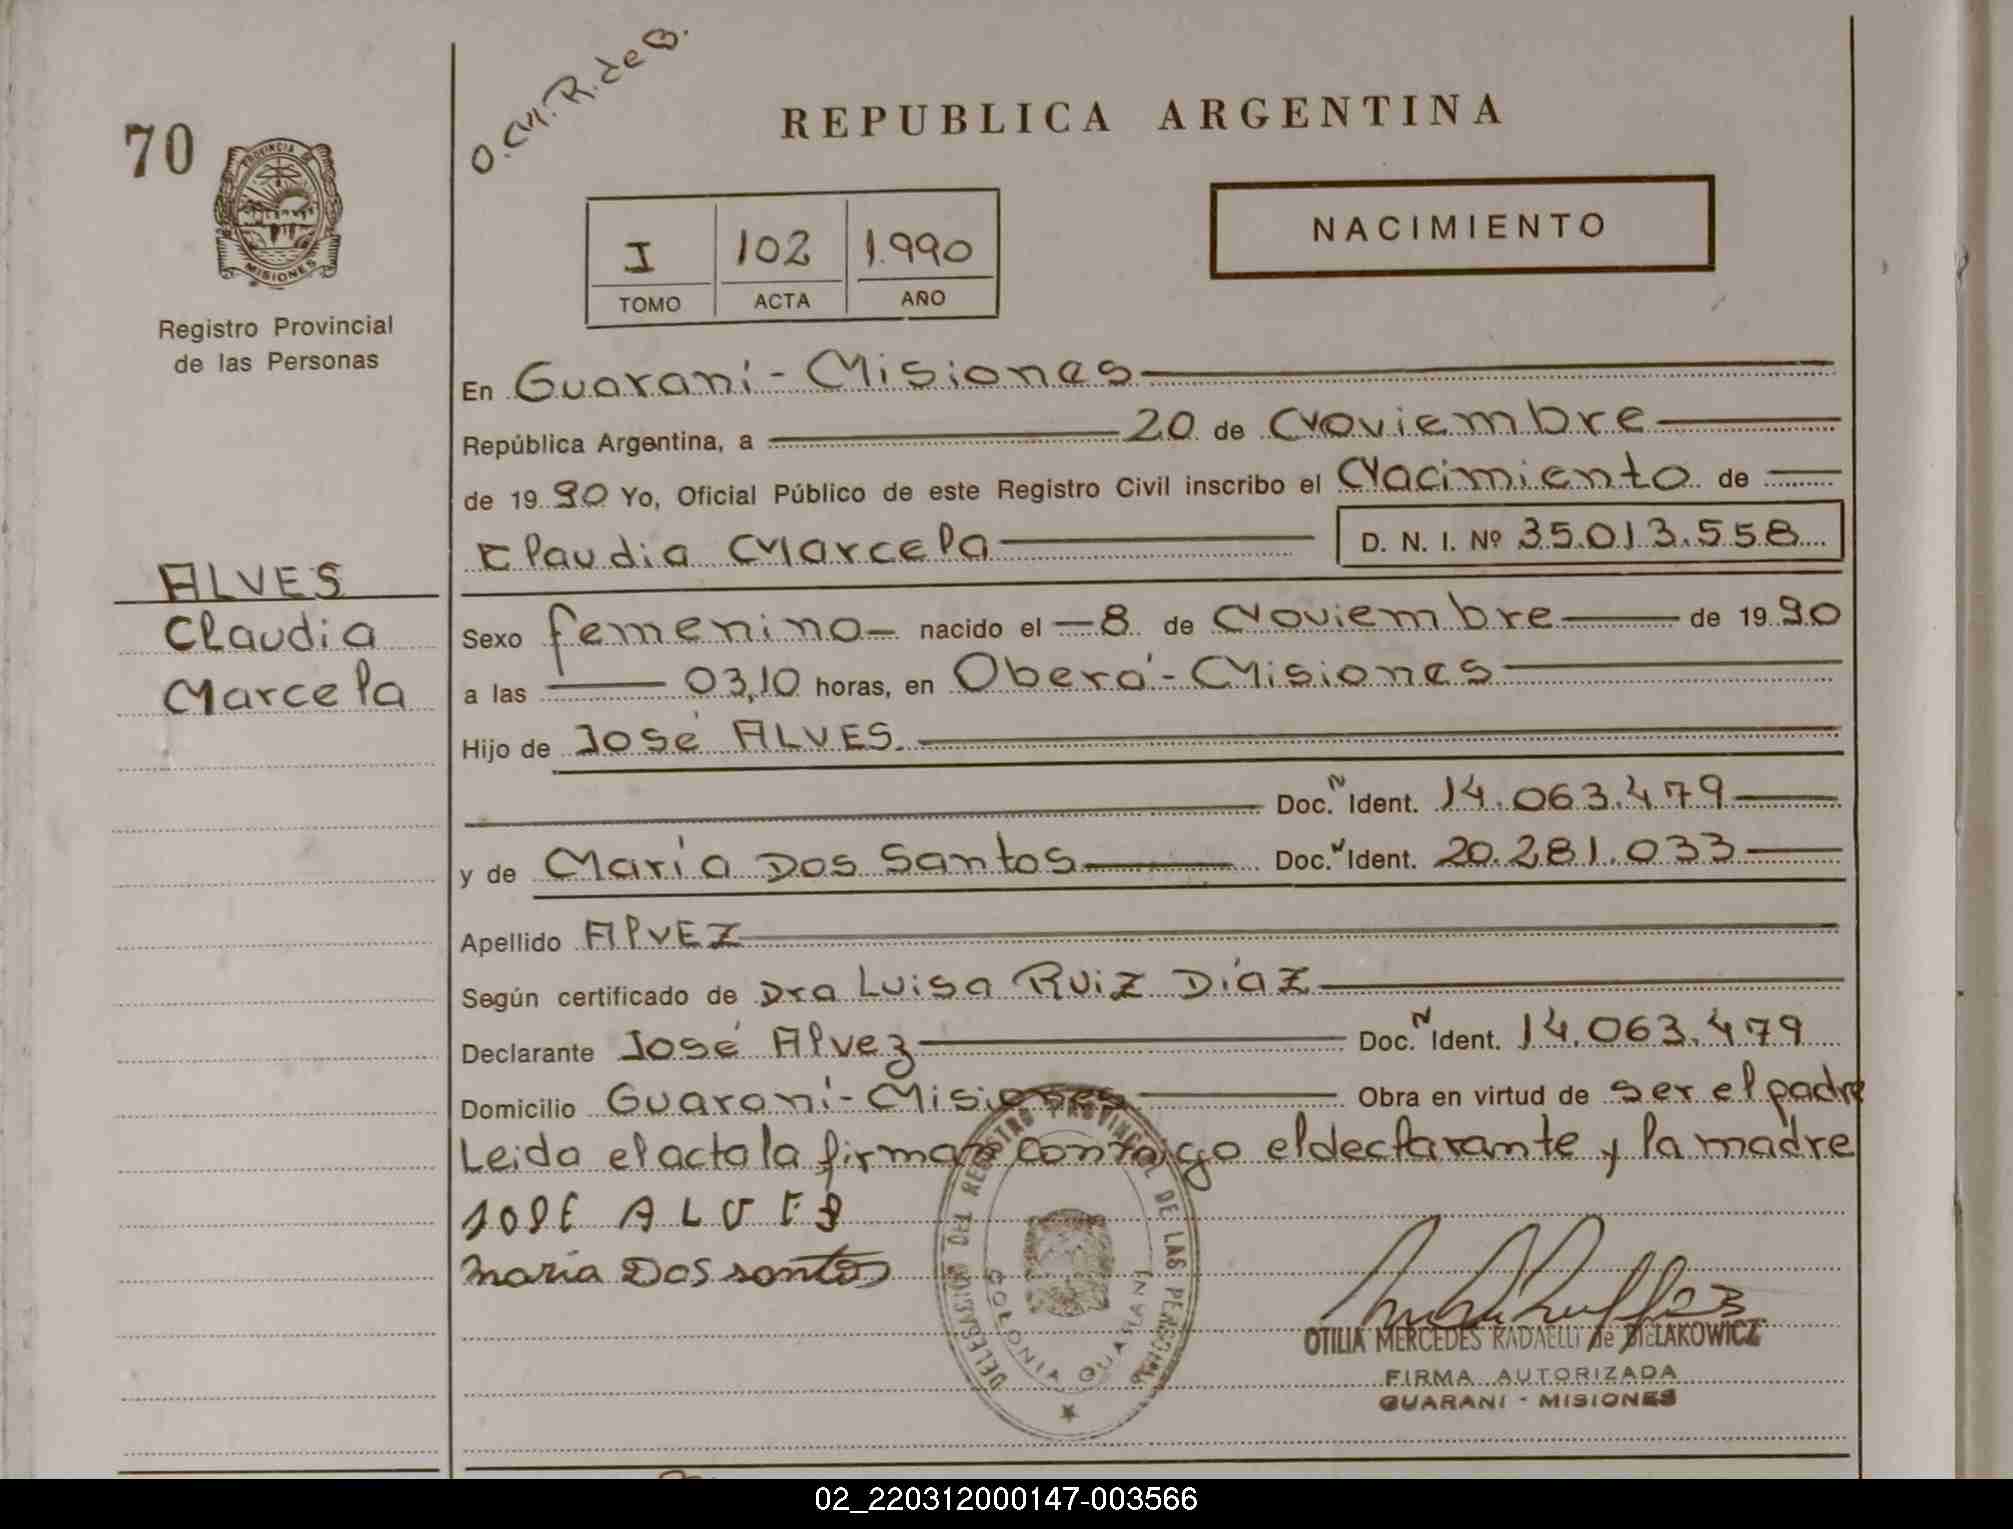 O.M.R. de B.
70
REPUBLICA ARGENTINA
PROVINCIA DE
MISIONES
I 102 1.990
TOMO ACTA AÑO
NACIMIENTO
Registro Provincial
de las Personas
En Guaraní - Misiones
República Argentina, a 20 de Noviembre
de 1990 Yo, Oficial Público de este Registro Civil inscribo el Nacimiento de
Claudia Marcela D. N. I. Nº 35.013.558
ALVES
Claudia
Marcela
Sexo femenino nacido el 8 de Noviembre de 1990
a las 03,10 horas, en Oberá - Misiones
Hijo de José ALVES.
Doc. N Ident. 14.063.479
y de María Dos Santos Doc. N Ident. 20.281.033
Apellido AlvEZ
Según certificado de Dra Luisa Ruiz Díaz
Declarante José Alvez Doc. N Ident. 14.063.479
Domicilio Guaraní - Misiones Obra en virtud de ser el padre
Leida el acta la firman conmigo el declarante y la madre
JOSE ALVES
maria Dos santos
DELEGACION DEL REGISTRO PROVINCIAL DE LAS PERSONAS
COLONIA GUARANI
OTILIA MERCEDES RADAELLI de BIELAKOWICZ
FIRMA AUTORIZADA
GUARANI - MISIONES
02_220312000147-003566